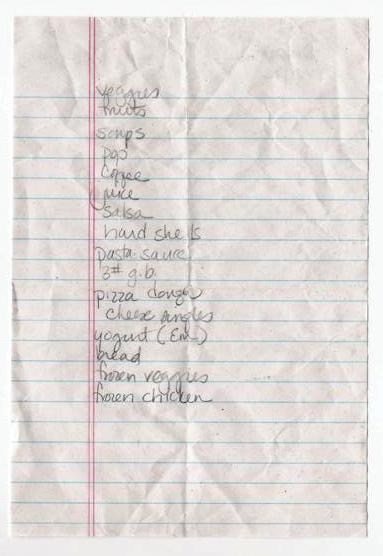 veggies
fruits
soups
pop
coffee
juice
salsa
hard shells
pasta sauce
3# g.b.
pizza dough
cheese
yogurt (Em)
bread
frozen veggies
frozen chicken